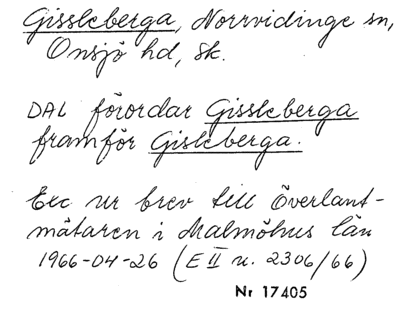 Gissleberga, Norrvidinge sn,
Onsjö hd, Sk.
DAL förordar Gissleberga
framför Gisleberga.
Exc ur brev till Överlant-
mätaren i Malmöhus län
1966-04-26 (E II u. 2306/66)
Nr 17405